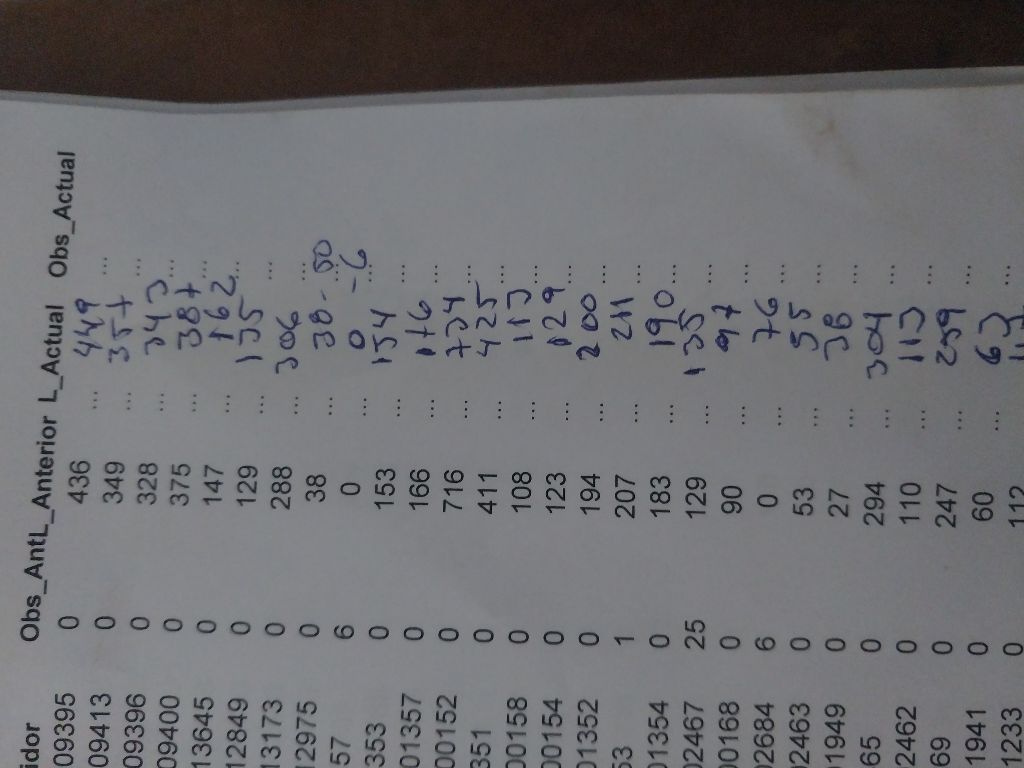 idor Obs_AntL_Anterior L_Actual Obs_Actual
09395 0 436 ... 449 ...
09413 0 349 ... 357 ...
09396 0 328 ... 343 ...
09400 0 375 ... 387 ...
13645 0 147 ... 162 ...
12849 0 129 ... 135 ...
13173 0 288 ... 306 ...
12975 0 38 ... 38 - 50 ...
57 6 0 ... 0 - 6 ...
353 0 153 ... 154 ...
01357 0 166 ... 176 ...
00152 0 716 ... 734 ...
351 0 411 ... 425 ...
00158 0 108 ... 113 ...
00154 0 123 ... 129 ...
01352 0 194 ... 200 ...
53 1 207 ... 211 ...
01354 0 183 ... 190 ...
02467 25 129 ... 135 ...
00168 0 90 ... 97 ...
02684 6 0 ... 76 ...
02463 0 53 ... 55 ...
01949 0 27 ... 38 ...
65 0 294 ... 304 ...
2462 0 110 ... 113 ...
69 0 247 ... 259 ...
1941 0 60 ... 63 ...
1233 0 112 ...